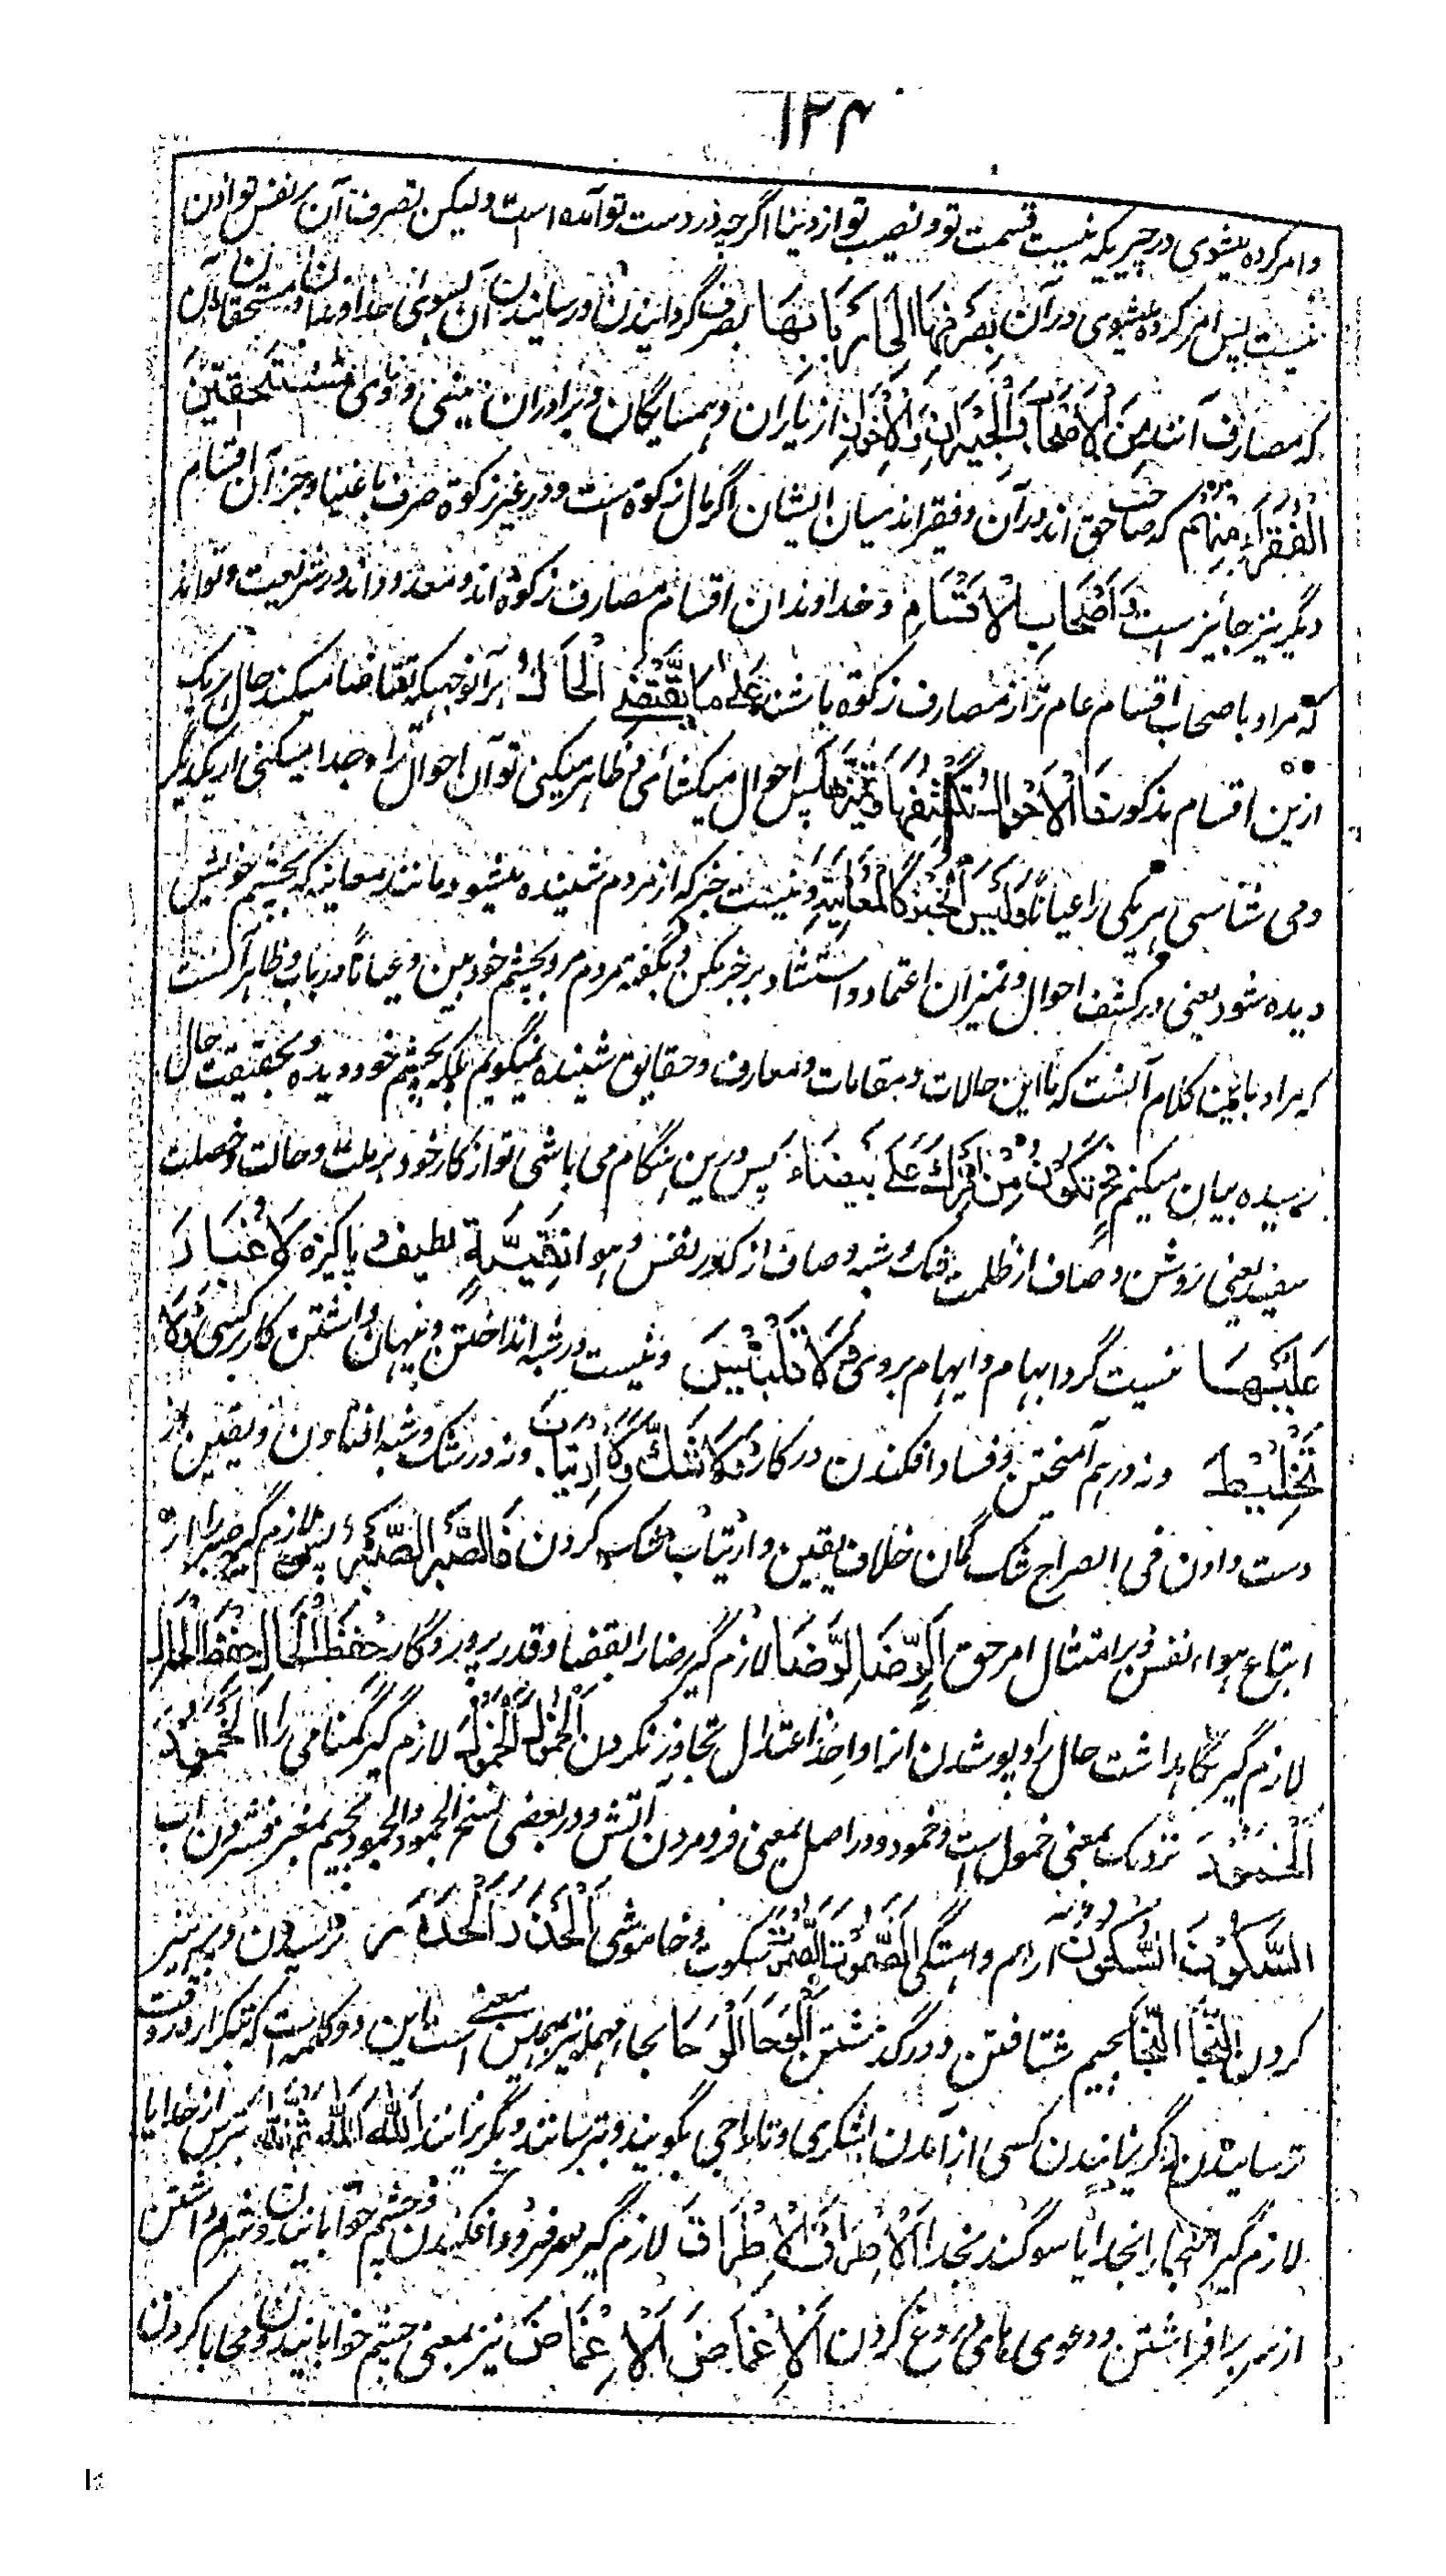 ۱۲۴
و امر کرده میشوی در چیزیکه نیست قسمت تو و نصیب تو از دنیا اگرچه در دست تو آمده است ولیکن تصرف آن بر نفس هوا دن
نیست پس امر کرده میشوی در آن بصرفها الی اربابها بصرف گردانیدن و رسانیدن آن بسوی خداوندان و مستحقان آن
که مصارف آنند من الاصحاب و الجیران و الاخوان از یاران و همسایگان و برادران دینی و مستحقین
الفقراء منهم که صاحب حق اند در آن و فقیراند میان ایشان اگر مال زکوة است و در غیر زکوة صرف باغنیا و جز آن اقسام
دیگر نیز جایز است و اصحاب الاقسام و خداوندان اقسام مصارف زکوة اند و معدود اند در شریعت و تواند
که مراد باصحاب اقسام عام تر از مصارف زکوة باشند علی ما یقتضی الحال بر آنوجهیکه تقاضا میکند حال هر یک
ازین اقسام مذکور فالاحوال تکشفها و تمیزها پس احوال میکشائی و ظاهر میکنی تو آن احوال را و جدا میکنی از یکدیگر
و می شناسی هر یکی را عیانا و لیس الخبر کالمعاینة و نیست خبر که از مردم شنیده میشود مانند معاینه که بچشم خویش
دیده شود یعنی در کشف احوال و تمیز آن اعتماد و استشهاد بر خبر مکن و بگفته مردم مرو بچشم خود ببین و عیانا دریاب و ظاهر آنست
که مراد باین کلام آنست که ما این حالات و مقامات و معارف و حقایق شنیده نمیگویم بلکه بچشم خود دیده و بحقیقت حال
رسیده بیان میکنم فح تکون من امرک علی بیضاء پس درین هنگام می باشی تو از کار خود بر ملت و حالت و خصلت
سفید یعنی روشن و صاف از ظلمت شک و شبه و صاف از کدور نفس و هوا نقیة لطیف و پاکیزه لا غبار
علیها نیست گرد ابهام و ایهام بروی و لا تلبیس و نیست در شبه انداختن و پنهان داشتن کار بر کسی و لا
تخلیط و نه درهم آمیختن و فساد افکندن در کار و لا شک و لا ارتیاب و نه در شک و شبه افتادن و یقین از
دست دادن فی الصراح شک گمان خلاف یقین و ارتیاب بشک کردن فالصبر الصبر پس لازم گیر صبر را از
اتباع هواء نفس و بر امتثال امر حق الرضا الرضا لازم گیر رضا را بقضا و قدر پروردگار حفظ الحال حفظ الحال
لازم گیر نگاهداشت حال را و پوشیدن انرا و اخذ اعتدال تجاوز نکردن الخمول الخمول لازم گیر گمنامی را الخمود
الخمود نزدیک بمعنی خمول است و خمود در اصل بمعنی فرو مردن آتش و در بعضی نسخ الجمود الجمود بجیم بمعنی فسردن آب
السکوت السکون آرام و آهستگی الصموت الصموت سکوت و خاموشی الحذر الحذر ترسیدن و پرهیز
کردن النجا النجا بجیم شتافتن و درگذشتن الوحا الوحا بحاء مهمله نیز بهمین معنی است این دو کلمه است که تکرار در وقت
ترسانیدن و گریزانیدن کسی از آمدن لشکری و تاراجی بگویند و بترسانند و بگریزانند الله الله ثم الله بترس از خدا یا
لازم گیر التجا را بخدا یا سوگند بخدا الاطراق الاطراق لازم گیر سر فرود افکندن و چشم خوابانیدن و شرم داشتن
از سر برافراشتن و دعوی های دروغ کردن الاغماض الاغماض نیز بمعنی چشم خوابانیدن و محابا کردن